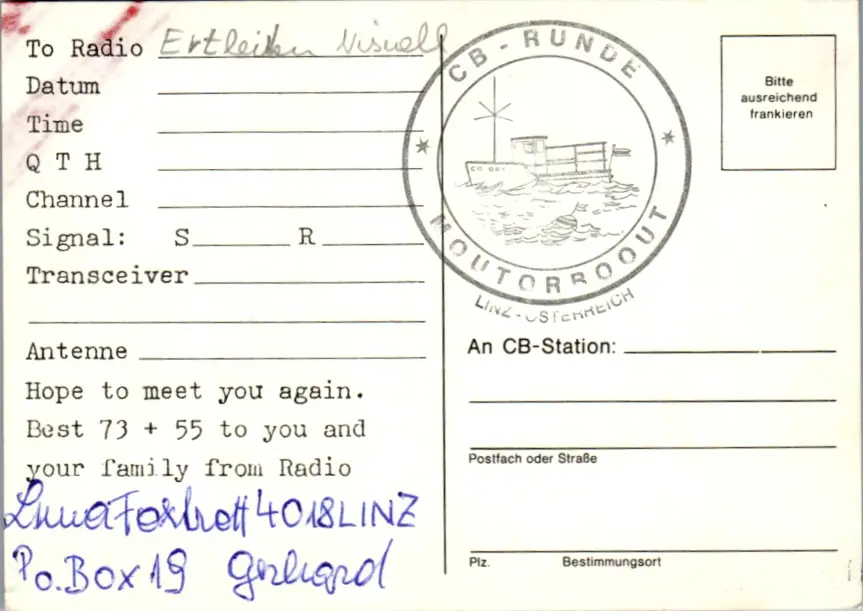 To Radio Ertleiten Visuell
Datum
Time
Q T H
Channel
Signal: S R
Transceiver
Antenne
Hope to meet you again.
Best 73 + 55 to you and
your family from Radio
Foxtrott 4018 LINZ
Po. Box 19 Gerhard
CB - RUNDE
MOUTORBOOUT
LINZ - ÖSTERREICH
Bitte
ausreichend
frankieren
An CB-Station:
Postfach oder Straße
Plz. Bestimmungsort